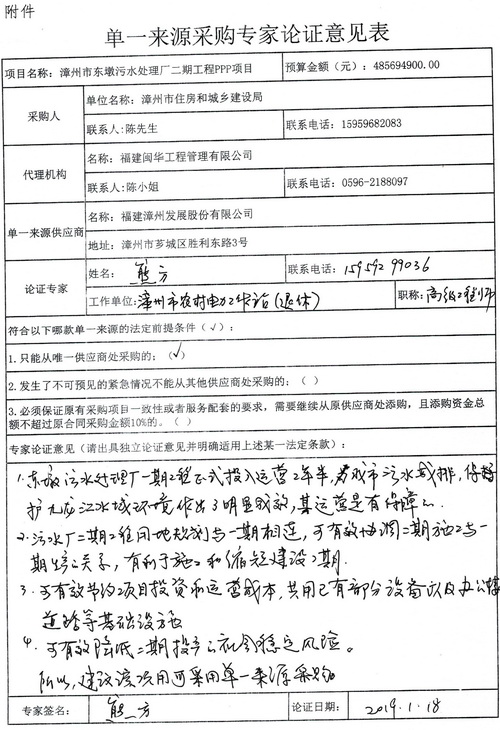 附件
单一来源采购专家论证意见表
项目名称：漳州市东墩污水处理厂二期工程PPP项目 预算金额（元）：485694900.00
采购人
单位名称：漳州市住房和城乡建设局
联系人:陈先生 联系电话：15959682083
代理机构
名称：福建闽华工程管理有限公司
联系人:陈小姐 联系电话：0596-2188097
单一来源供应商
名称：福建漳州发展股份有限公司
地址：漳州市芗城区胜利东路3号
论证专家
姓名：熊一方 联系电话：15959299036
工作单位:漳州市农村电力工作站(退休) 职称:高级工程师
符合以下哪款单一来源的法定前提条件（√）:
1.只能从唯一供应商处采购的；（√）
2.发生了不可预见的紧急情况不能从其他供应商处采购的；（ ）
3.必须保证原有采购项目一致性或者服务配套的要求，需要继续从原供应商处添购，且添购资金总
额不超过原合同采购金额10%的。（ ）
专家论证意见（请出具独立论证意见并明确适用上述某一法定条款）：
1.东墩污水处理厂一期工程正式投入运营2年半,为城市污水减排,保
护九龙江水域环境作出了明显成效,其运营是有保障的.
2.污水厂二期工程用地规划与一期相连,可有效协调二期施工与一
期生产关系,有利于施工和缩短建设工期.
3.可有效节约项目投资和运营成本,共用已有部分设备以及办公楼
道路等基础设施
4.可有效降低二期投产的社会稳定风险。
所以,建议该项目可采用单一来源采购
专家签名：熊一方 论证日期：2019.1.18